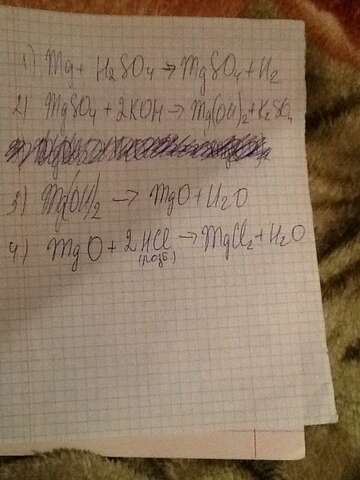 1) Mg + H₂SO₄ → MgSO₄ + H₂
2) MgSO₄ + 2KOH → Mg(OH)₂ + K₂SO₄
3) Mg(OH)₂ → MgO + H₂O
4) MgO + 2HCl → MgCl₂ + H₂O
(разб)